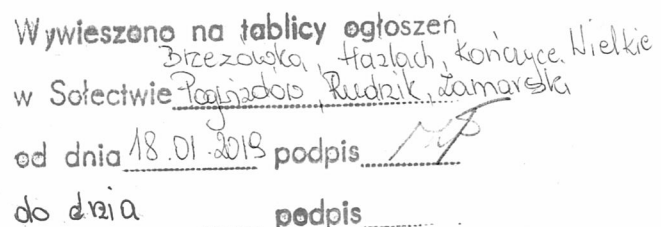 Wywieszono na tablicy ogłoszeń
Brzezówka, Hazlach, Kończyce Wielkie
w Sołectwie Pogwizdów, Rudnik, Zamarski
od dnia 18.01.2019 podpis
do dnia podpis